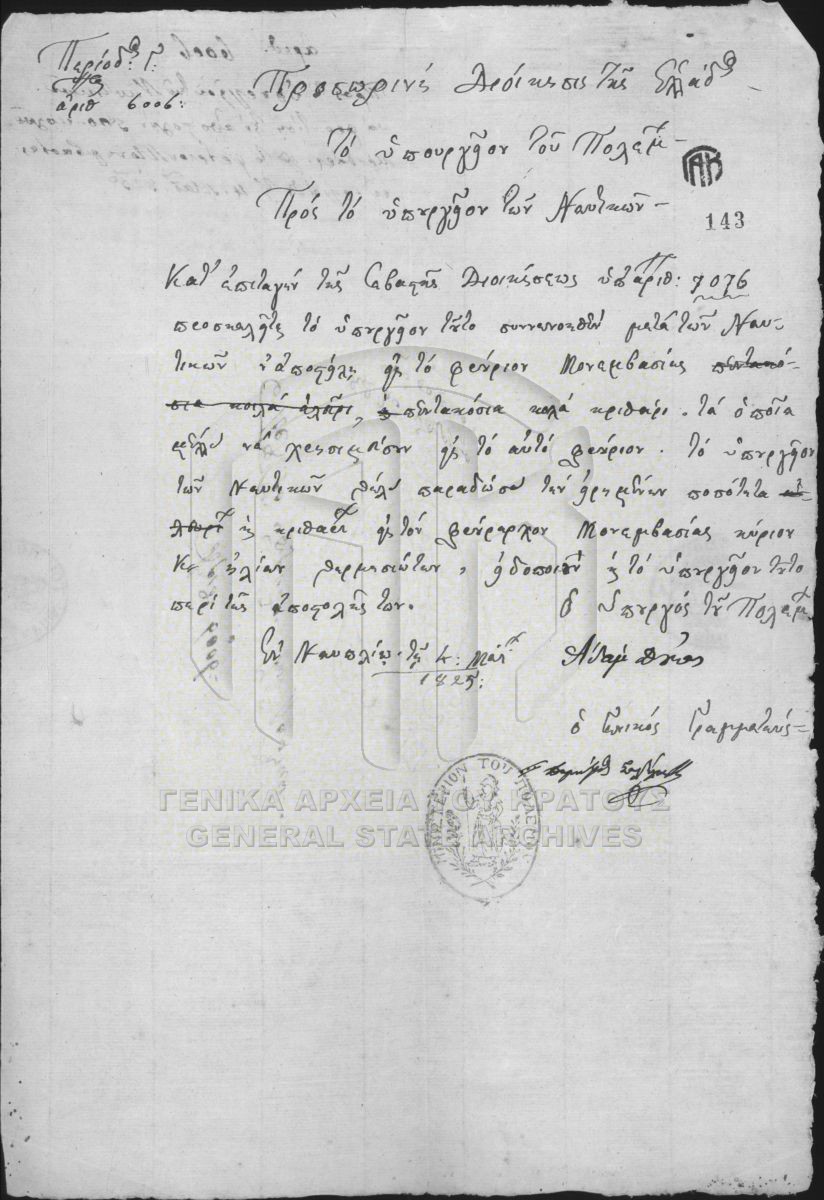 Περίοδ: Γ:
ἀριθ 6006:
Προσωρινὴ Διοίκησις τῆς Ἑλλάδ
Τὸ ὑπουργεῖον τοῦ Πολέμ
ΓΑΚ
Πρὸς τὸ ὑπουργεῖον τῶν Ναυτικῶν
143
Κατ' ἐπιταγὴν τῆς Σεβαστῆς Διοικήσεως ὑπ' ἀριθ: 7076
προσκαλεῖται τὸ ὑπουργεῖον τοῦτο μετὰ τῶν Ναυ-
τικῶν ν' ἀποστείλῃ εἰς τὸ φρούριον Μονεμβασίας πεντακό-
σια κοιλὰ ἀλεύρι, πεντακόσια κοιλὰ κριθάρι. τὰ ὁποῖα
μέλλει νὰ χρησιμεύσουν εἰς τὸ αὐτὸ φρούριον. τὸ ὑπουργεῖον
τῶν Ναυτικῶν θέλει παραδώσει τὴν εἰρημένην ποσότητα
κριθαρι εἰς τὸν φρούραρχον Μονεμβασίας κύριον
Ἠλίαν Θερμησιώτην, εἰδοποιῶν τὸ ὑπουργεῖον τοῦτο
περὶ τῆς ἀποστολῆς των.
ὁ ὑπουργὸς τοῦ Πολέμ
Ἐν Ναυπλίῳ τῇ 4: Μαΐ
1825:
Ἀδὰμ Δούκας
ὁ Γενικὸς Γραμματεύς
ΜΙΝΙΣΤΕΡΙΟΝ ΤΟΥ ΠΟΛΕΜΟΥ
ΓΕΝΙΚΑ ΑΡΧΕΙΑ ΤΟΥ ΚΡΑΤΟΥΣ
GENERAL STATE ARCHIVES